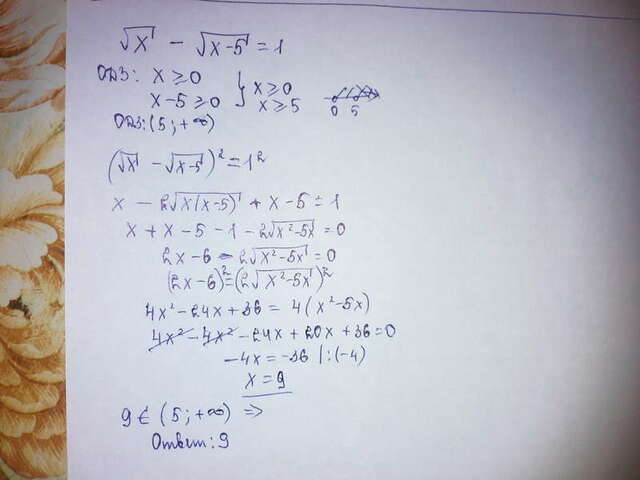 √x - √(x-5) = 1
ОДЗ: x ≥ 0 } x ≥ 0
x-5 ≥ 0 } x ≥ 5
0 5
ОДЗ: (5; +∞)
(√x - √(x-5))² = 1²
x - 2√(x(x-5)) + x-5 = 1
x + x - 5 - 1 - 2√(x²-5x) = 0
2x-6 - 2√(x²-5x) = 0
(2x-6)² = (2√(x²-5x))²
4x² - 24x + 36 = 4(x²-5x)
4x² - 4x² - 24x + 20x + 36 = 0
-4x = -36 |:(-4)
x = 9
9 ∈ (5; +∞) ⇒
Ответ: 9